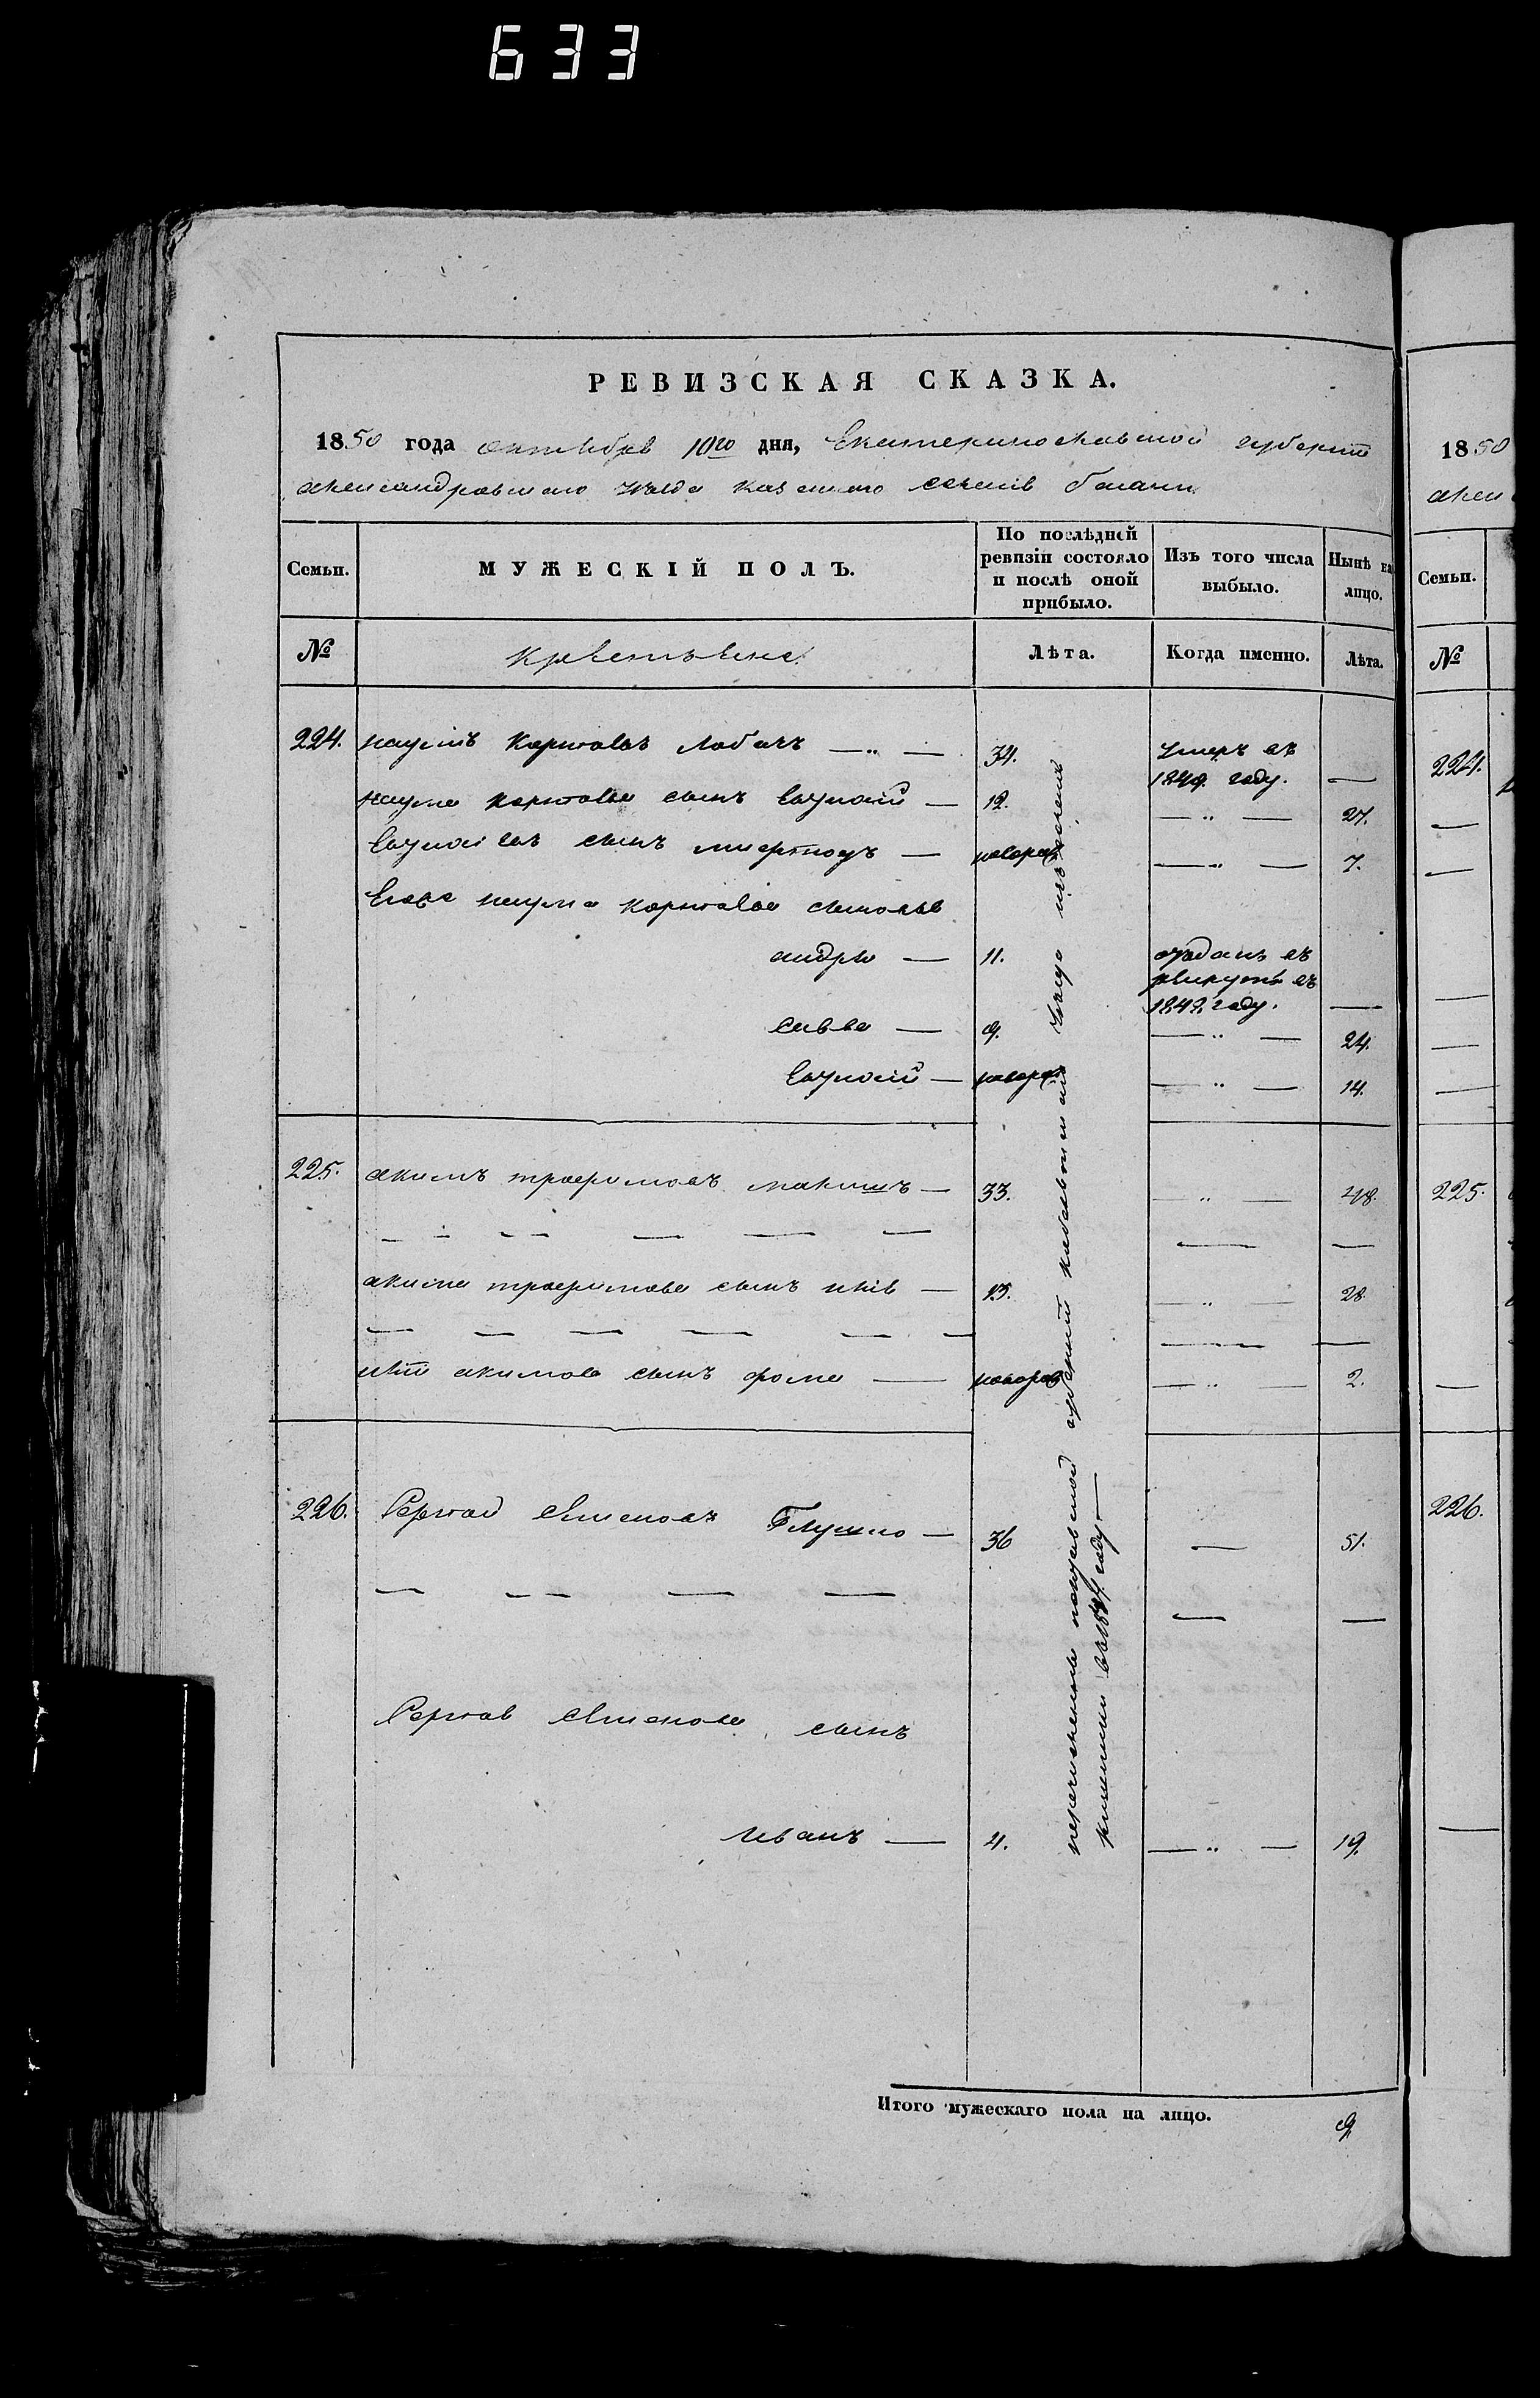 633
РЕВИЗСКАЯ СКАЗКА.
1850 года октября 10го дня, Екатеринославской губернии
александровскаго уезда казенного селенія
Семьи.
МУЖЕСКІЙ ПОЛЪ.
По послѣдней ревизіи состояло и послѣ оной прибыло.
Изъ того числа выбыло.
Нынѣ на лицо.
№
Крестьяне
Лѣта.
Когда именно.
Лѣта.
224. наумъ Карповъ Лобачъ — „ — 34. умеръ въ
1849. году. —
наума карпова сынъ — 12. — „ — 27.
сынъ — новорож — „ — 7.
Его наума карпова сыновья
андрей — 11. отданъ въ
рекруты въ
1842 году. —
савва — 9. — „ — 24.
— новорож — „ — 14.
225. акимъ трофимовъ — 33. — „ — 48.
акима трофимова сынъ илія — 13. — „ — 28.
иліи акимова сынъ фома — новорож — „ — 2.
226. Сергей Семеновъ Глушко — 36 — 51.
Сергея Семенова сынъ
Иванъ — 4. — „ — 19.
перечислены полтавской губерніи
Итого мужескаго пола на лицо. 9
1850
Семьи.
№
224.
225.
226.